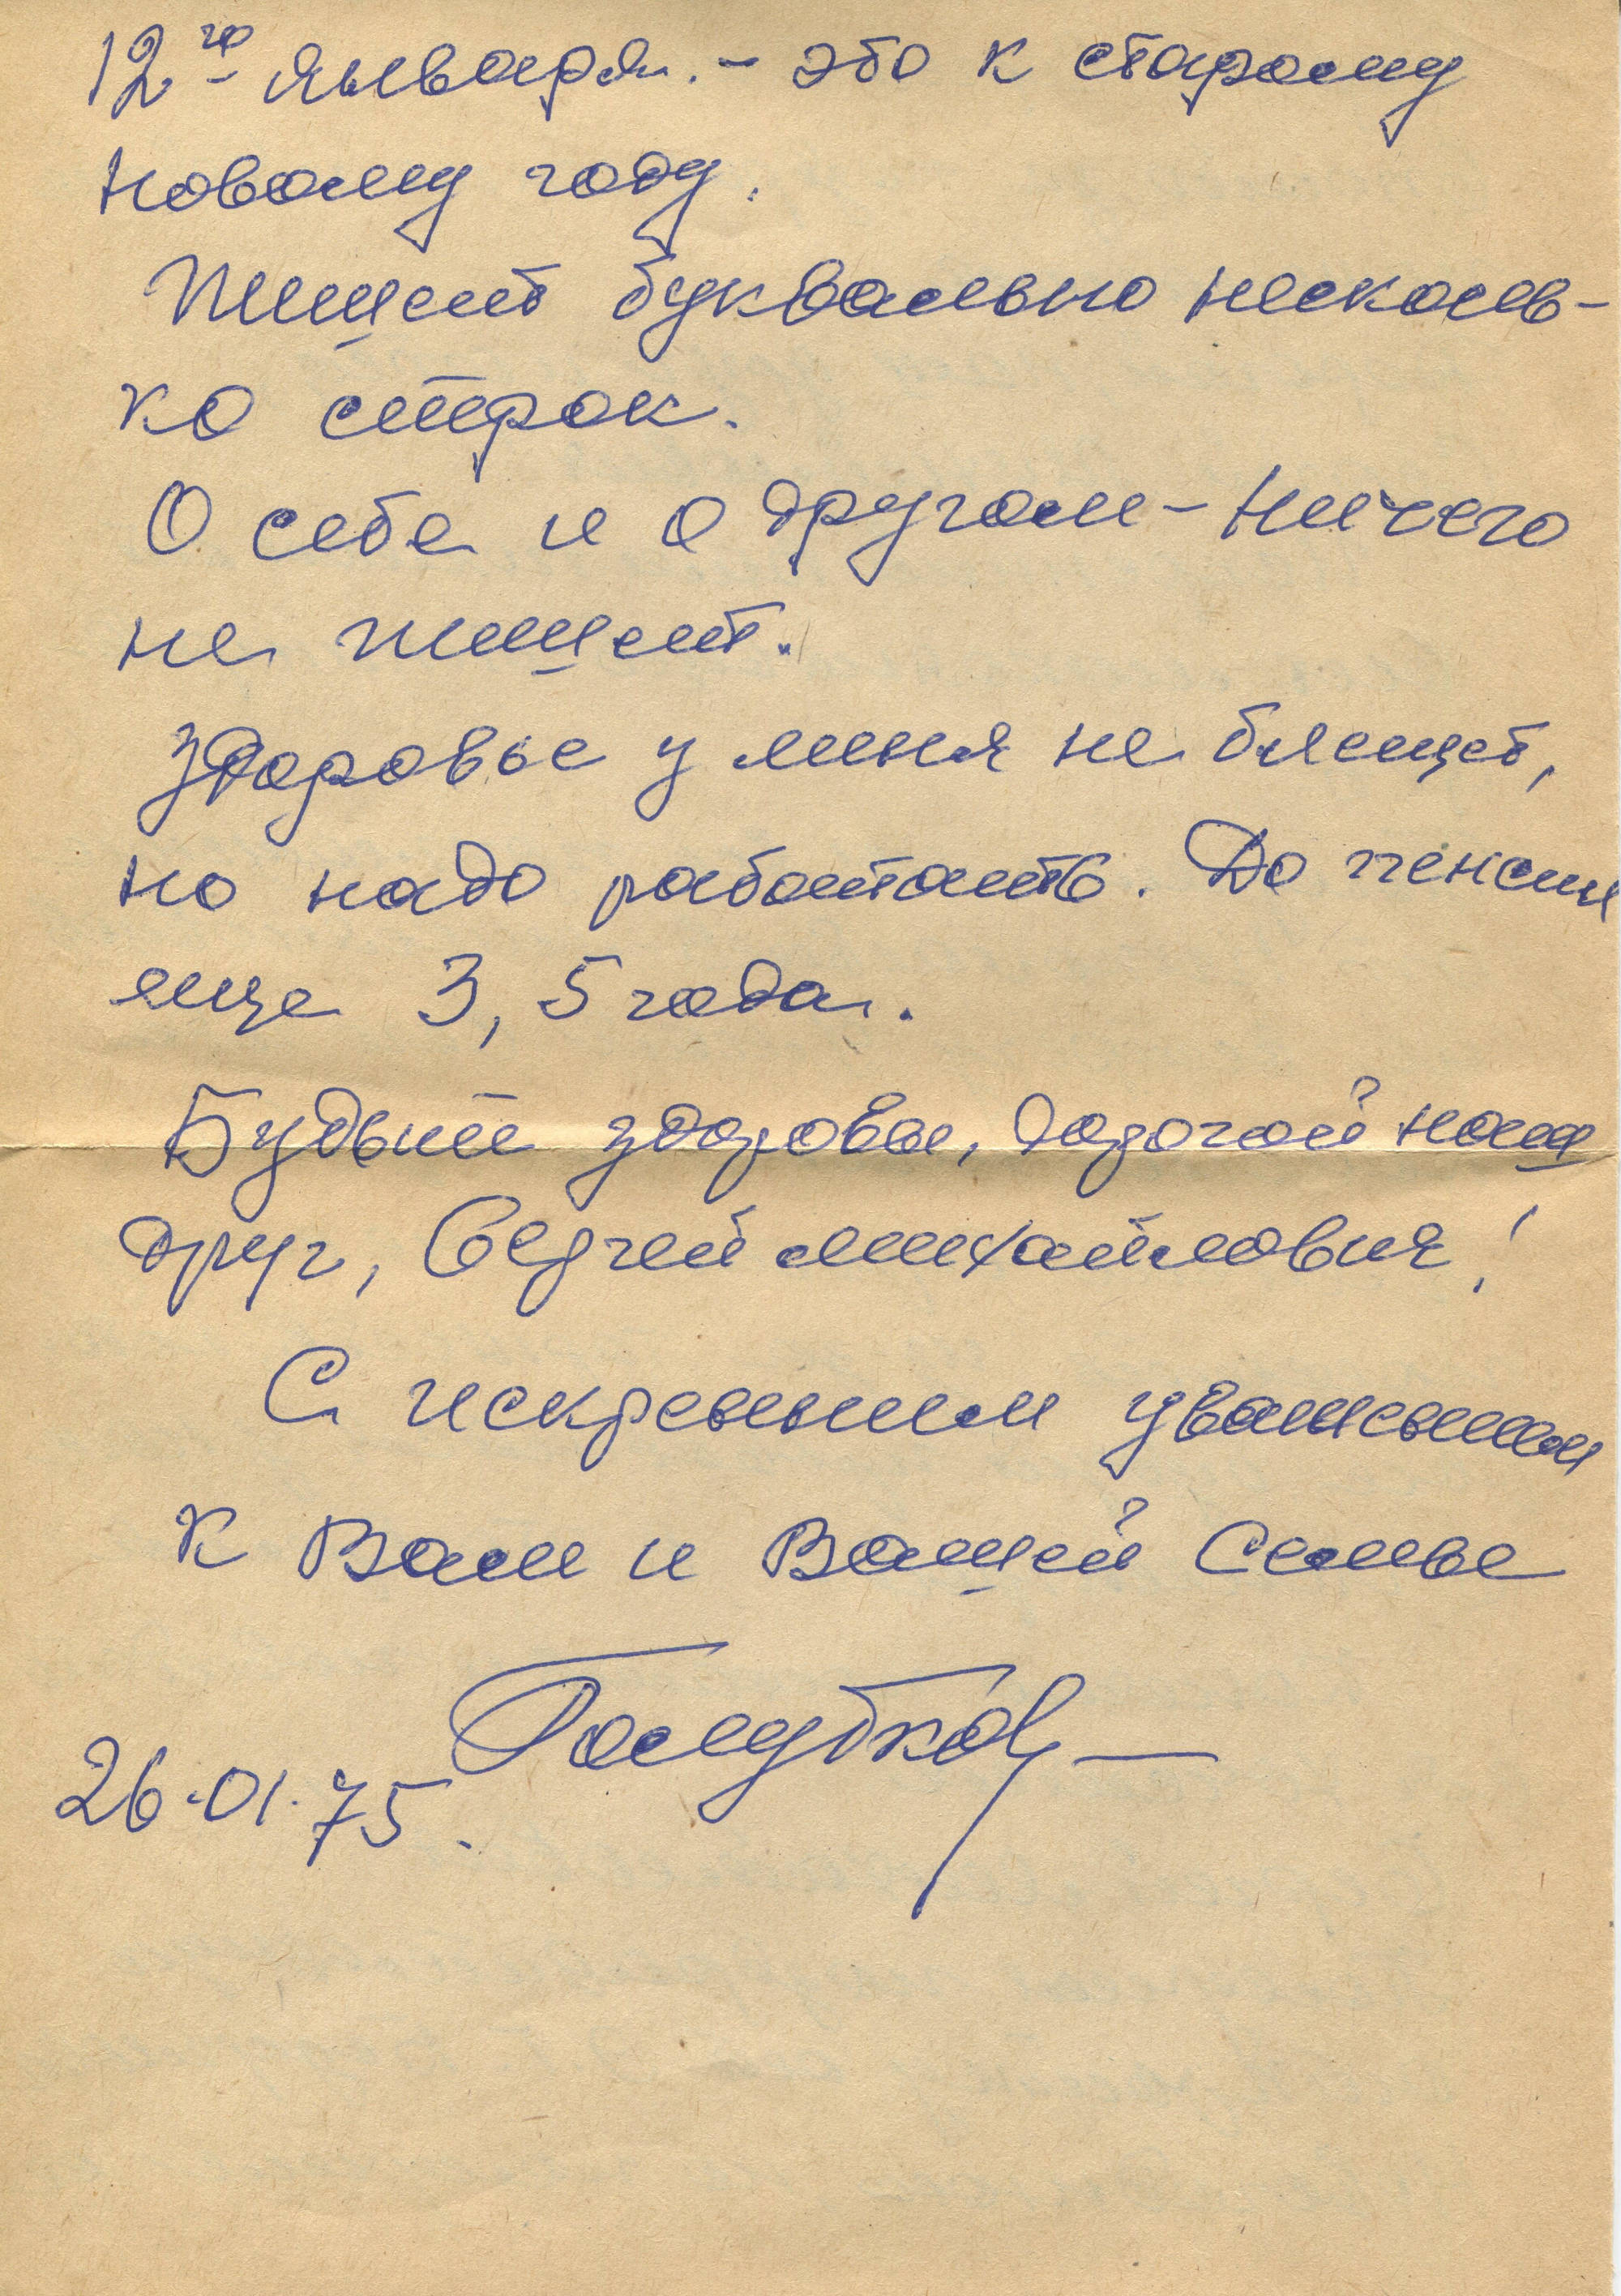 12го января. - это к старому
новому году.
Пишет буквально несколь-
ко строк.
О себе и о другом - ничего
не пишет.
Здоровье у меня не блещет,
но надо работать. До пенсии
еще 3,5 года.
Будьте здоровы, дорогой наш
друг, Сергей Михайлович!
С искренним уважением
к Вам и Вашей Семье
Голубков
26.01.75.